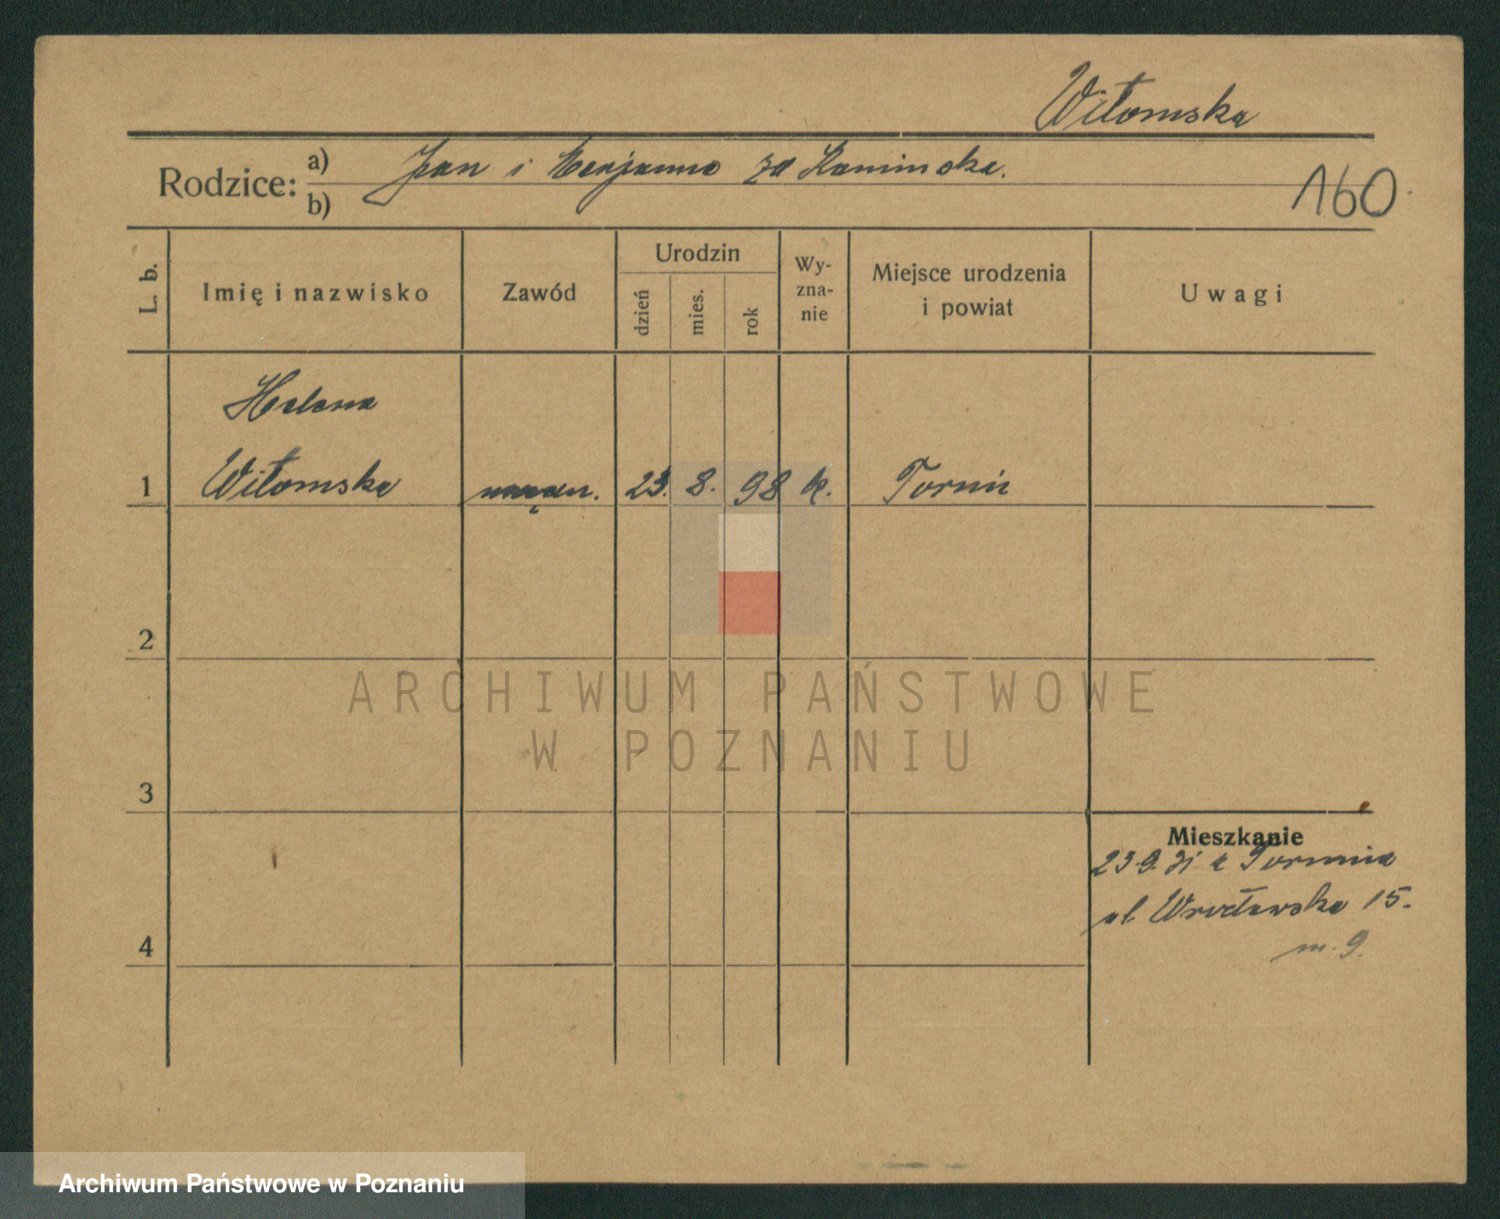 Witomska
Rodzice: a) Jan i Marjanna zd Kaminska.
b)
160
L. b. Imię i nazwisko Zawód Urodzin dzień mies. rok Wy-zna-nie Miejsce urodzenia i powiat Uwagi
Helena
1 Witomska 23. 8. 98 k. Toruń
2
3
4
Mieszkanie
23.9.31 z Torunia
ul. Wrocławska 15.
m. 9.
ARCHIWUM PAŃSTWOWE
W POZNANIU
Archiwum Państwowe w Poznaniu